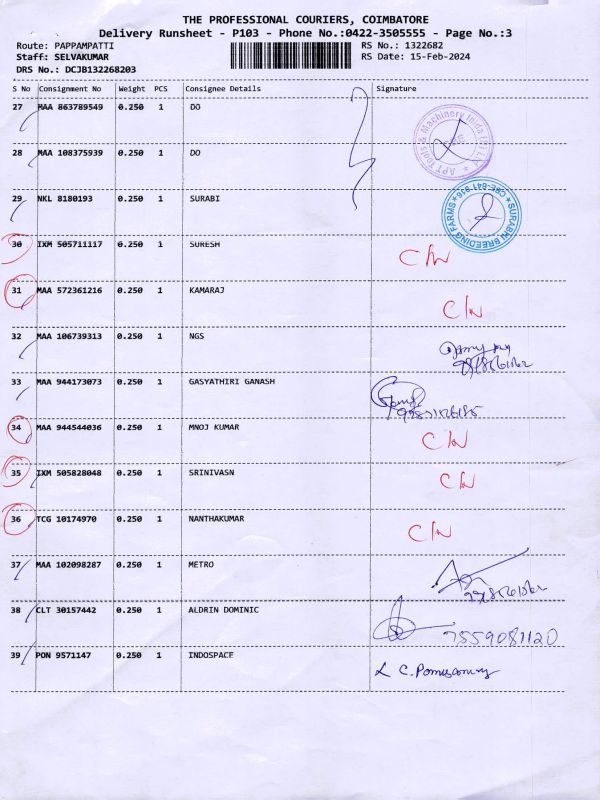 THE PROFESSIONAL COURIERS, COIMBATORE
Delivery Runsheet - P103 - Phone No.:0422-3505555 - Page No.:3
Route: PAPPAMPATTI RS No.: 1322682
Staff: SELVAKUMAR RS Date: 15-Feb-2024
DRS No.: DCJB132268203
S No Consignment No Weight PCS Consignee Details Signature
27 MAA 863789549 0.250 1 DO
28 MAA 108375939 0.250 1 DO
APT Tools & Machinery India (P) Ltd
29 NKL 8180193 0.250 1 SURABI
SURABHI BREEDING FARMS CBE-641 016
30 IXM 505711117 0.250 1 SURESH C/N
31 MAA 572361216 0.250 1 KAMARAJ C/N
32 MAA 106739313 0.250 1 NGS
33 MAA 944173073 0.250 1 GASYATHIRI GANASH
34 MAA 944544036 0.250 1 MNOJ KUMAR C/N
35 IXM 505828048 0.250 1 SRINIVASN C/N
36 TCG 10174970 0.250 1 NANTHAKUMAR C/N
37 MAA 102098287 0.250 1 METRO
38 CLT 30157442 0.250 1 ALDRIN DOMINIC 7559081120
39 PON 9571147 0.250 1 INDOSPACE